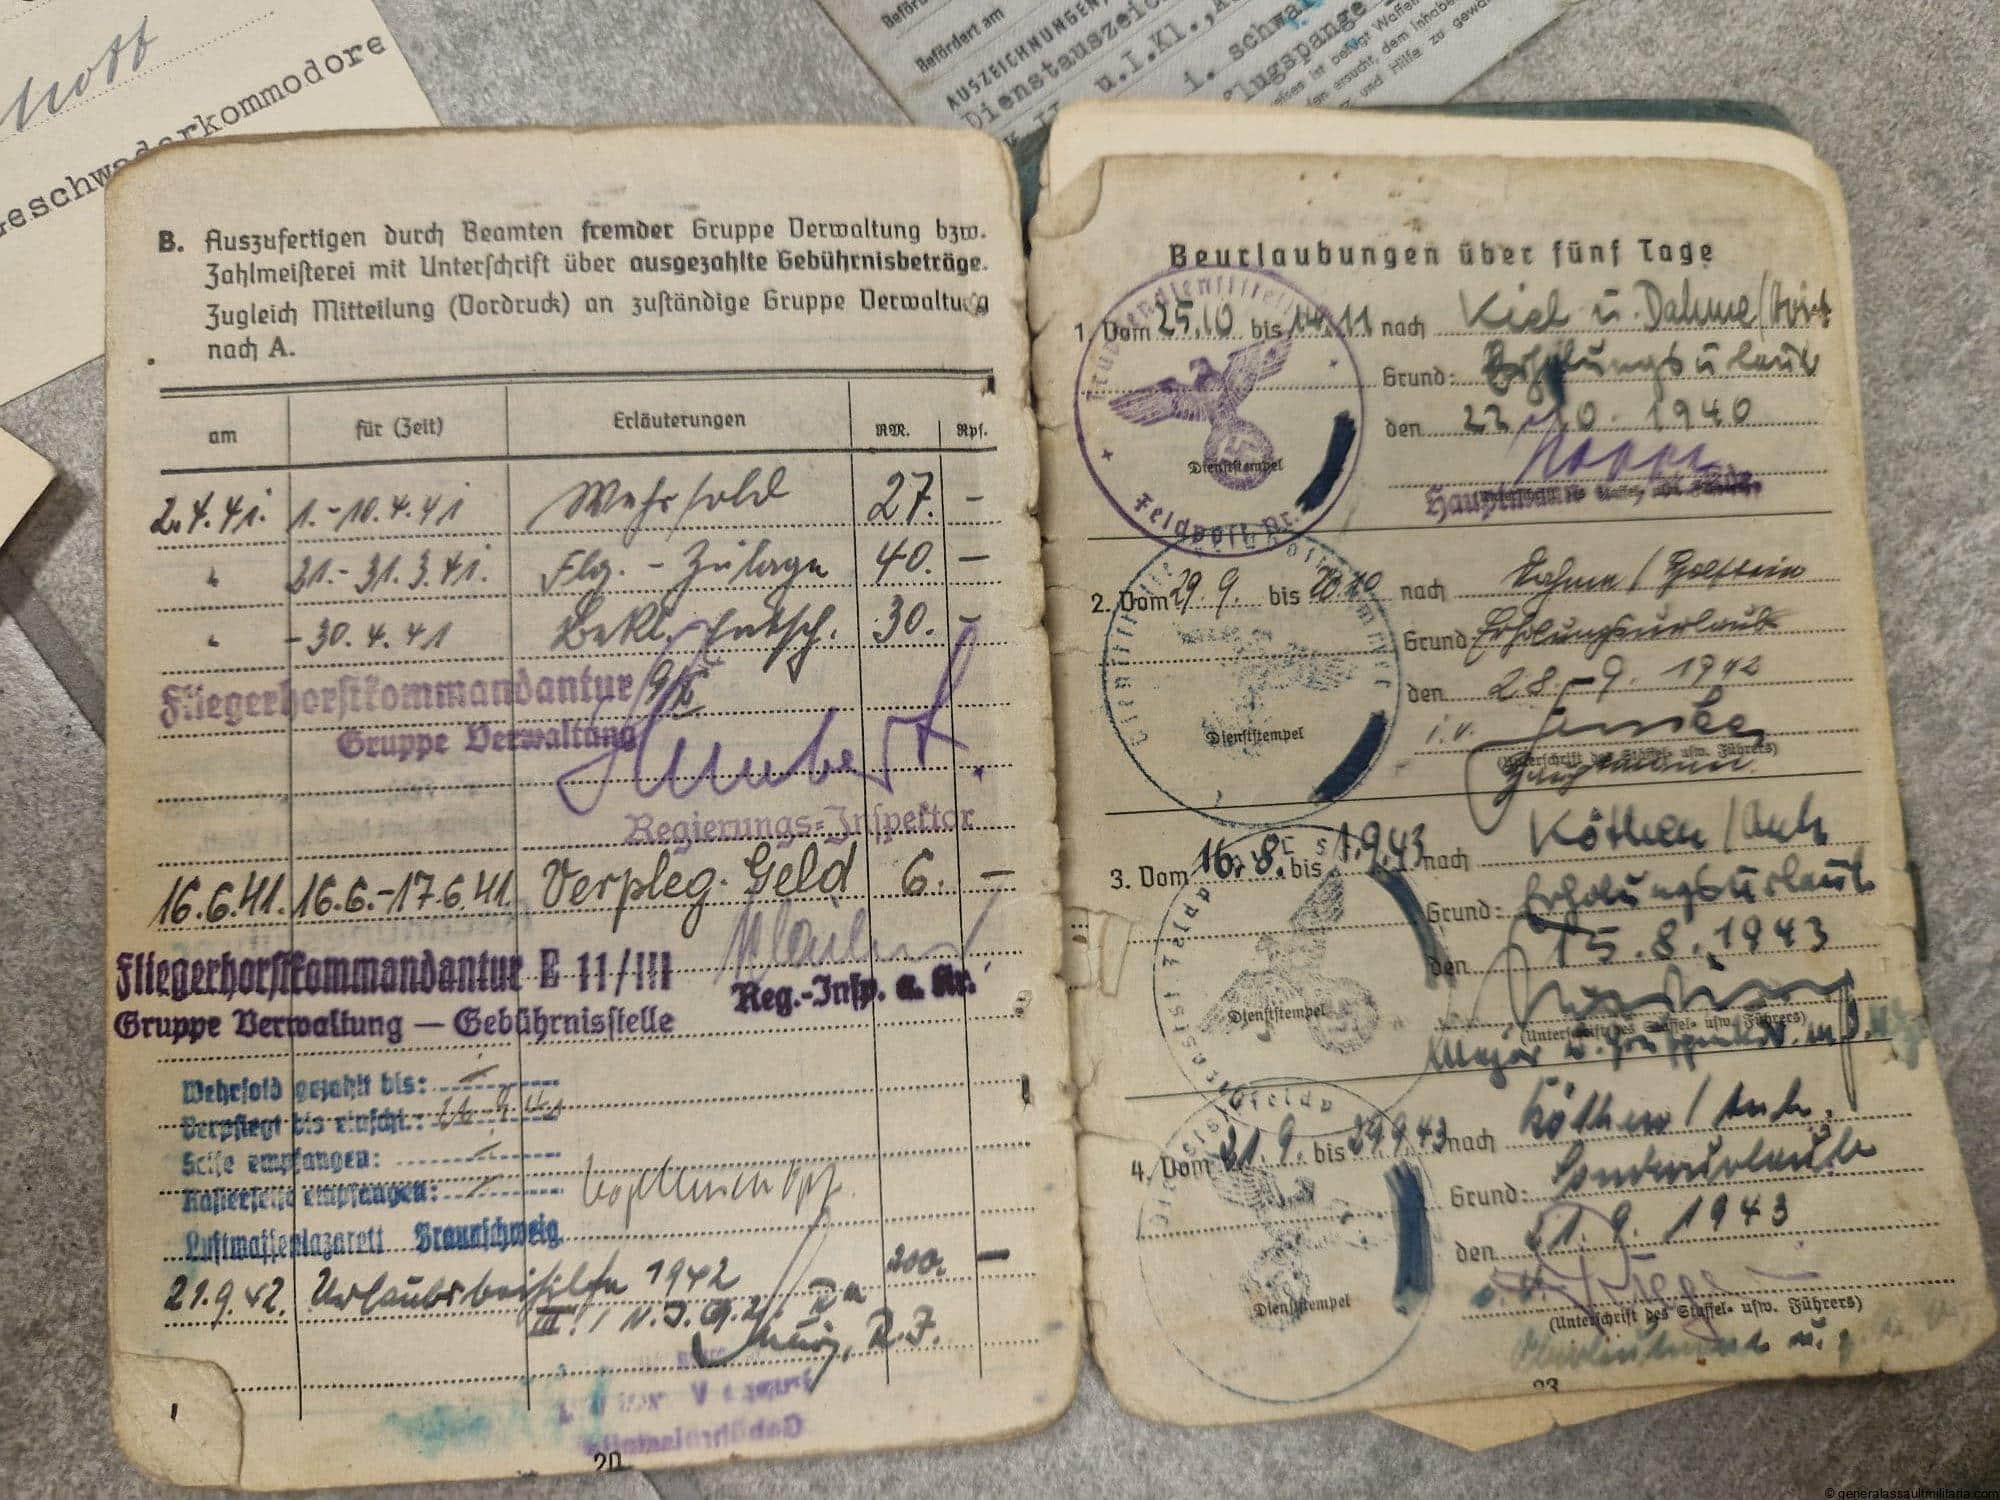 Geschwaderkommodore
Befördert am
AUSZEICHNUNGEN,
Dienstauszeich
u.I.Kl.,
i. schwar
flugspange
und Hilfe zu gewä
B. Auszufertigen durch Beamten fremder Gruppe Verwaltung bzw.
Zahlmeisterei mit Unterschrift über ausgezahlte Gebührnisbeträge.
Zugleich Mitteilung (Vordruck) an zuständige Gruppe Verwaltung
nach A.
am für (Zeit) Erläuterungen RM. Rpf.
2.4.41. 1.-10.4.41 Wehrsold 27. –
" 21.-31.3.41. Flg.-Zulage 40. –
" -30.4.41 Bekl. Entsch. 30. –
Fliegerhorstkommandantur
Gruppe Verwaltung
Regierungs-Inspektor
16.6.41. 16.6.-17.6.41. Verpfleg. Geld 6. –
Fliegerhorstkommandantur E 11/III
Reg.-Insp. a. Kr.
Gruppe Verwaltung — Gebührnisstelle
Wehrsold gezahlt bis:
Verpflegt bis einschl.:
Seife empfangen:
Rasierseife empfangen:
Luftwaffenlazarett Braunschweig
21.9.42. Urlaubsbeihilfe 1942 200. –
III./N.J.G.2
20
Beurlaubungen über fünf Tage
1. Vom 25.10 bis 14.11 nach Kiel u. Dahme/
Grund: Erholungsurlaub
den 22.10.1940
Dienststempel
Feldpost Nr.
Hauptmann
2. Vom 29.9. bis 20.10 nach Dahme/Holstein
Grund Erholungsurlaub
den 28.9.1942
i.V.
Dienststempel
(Unterschrift des Staffel- usw. Führers)
Hauptmann
3. Vom 16.8. bis 1.9.43 nach Köthen/Anh.
Grund: Erholungsurlaub
den 15.8.1943
Dienststempel
(Unterschrift des Staffel- usw. Führers)
Major u. Gruppenkdr.
4. Vom 21.9. bis 29.9.43 nach Köthen/Anh.
Grund: Sonderurlaub
den 21.9.1943
Dienststempel
(Unterschrift des Staffel- usw. Führers)
23
© generalassaultmilitaria.com